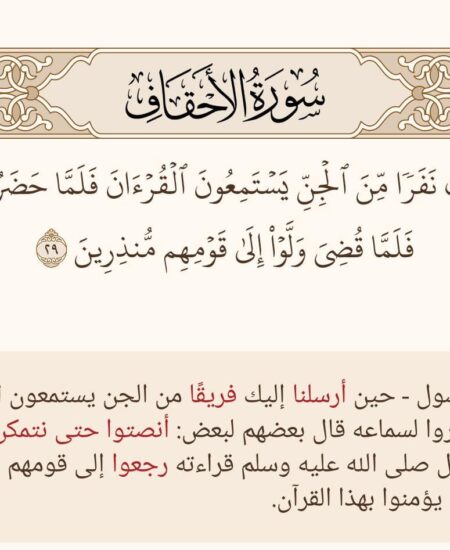 سُورَةُ الأَحْقَافِ
نَفَرًا مِّنَ ٱلْجِنِّ يَسْتَمِعُونَ ٱلْقُرْءَانَ فَلَمَّا حَضَرُ
فَلَمَّا قُضِىَ وَلَّوْا۟ إِلَىٰ قَوْمِهِم مُّنذِرِينَ ٢٩
سول - حين أرسلنا إليك فريقًا من الجن يستمعون ا
روا لسماعه قال بعضهم لبعض: أنصتوا حتى نتمكن
ل صلى الله عليه وسلم قراءته رجعوا إلى قومهم
يؤمنوا بهذا القرآن.